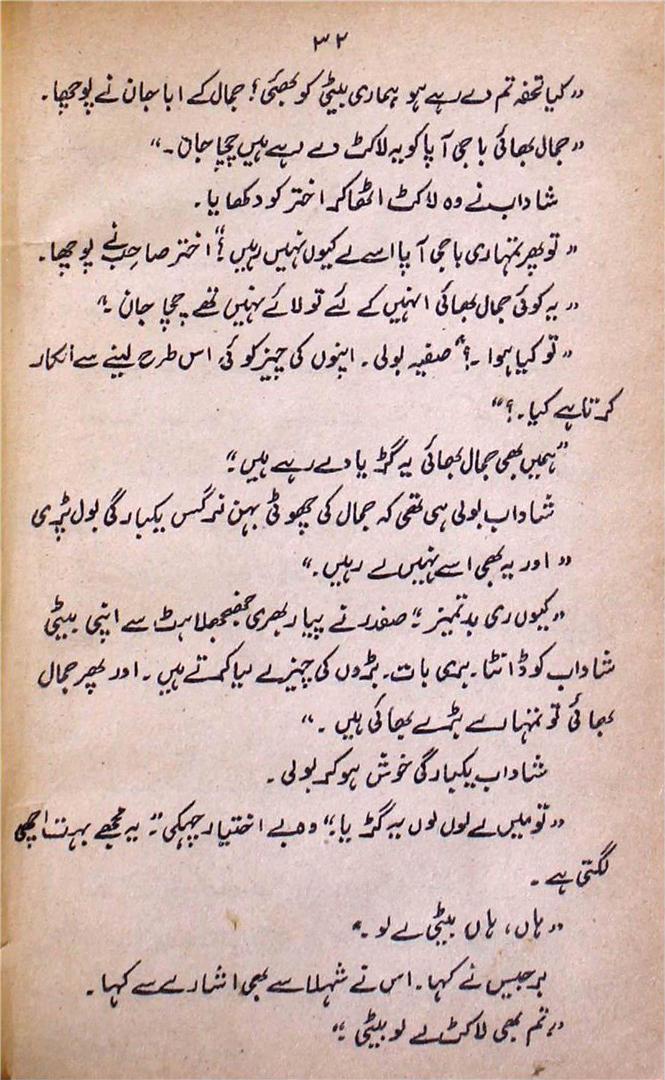 ۳۲
”کیا تحفہ تم دے رہے ہو ہماری بیٹی کو بھئی؟ جمال کے ابا جان نے پوچھا۔
”جمال بھائی باجی آپا کو یہ لاکٹ دے رہے ہیں چچا جان۔“
شاداب نے وہ لاکٹ اٹھا کر اختر کو دکھایا۔
”تو پھر تمہاری باجی آپا اسے لے کیوں نہیں رہیں؟“ اختر صاحب نے پوچھا۔
”یہ کوئی جمال بھائی انہیں کے لئے تو لائے نہیں تھے چچا جان۔“
”تو کیا ہوا۔؟“ صفیہ بولی۔ اپنوں کی چیز کو کوئی اس طرح لینے سے انکار
کرتا ہے کیا۔؟“
”ہمیں بھی جمال بھائی یہ گڑیا دے رہے ہیں۔“
شاداب بولی ہی تھی کہ جمال کی چھوٹی بہن نرگس یکبارگی بول پڑی
”اور یہ بھی اسے نہیں لے رہیں۔“
”کیوں ری بدتمیز۔“ صفدر نے پیار بھری جھنجھلاہٹ سے اپنی بیٹی
شاداب کو ڈانٹا۔ بری بات۔ بڑوں کی چیز لے لیا کرتے ہیں۔ اور پھر جمال
بھائی تو تمہارے بڑے بھائی ہیں۔“
شاداب یکبارگی خوش ہو کر بولی۔
”تو میں لے لوں یہ گڑیا۔“ وہ بے اختیار چہکی۔ ”یہ مجھے بہت اچھی
لگتی ہے۔
”ہاں، ہاں بیٹی لے لو۔“
برجیس نے کہا۔ اس نے شہلا سے بھی اشارے سے کہا۔
”تم بھی لاکٹ لے لو بیٹی۔“